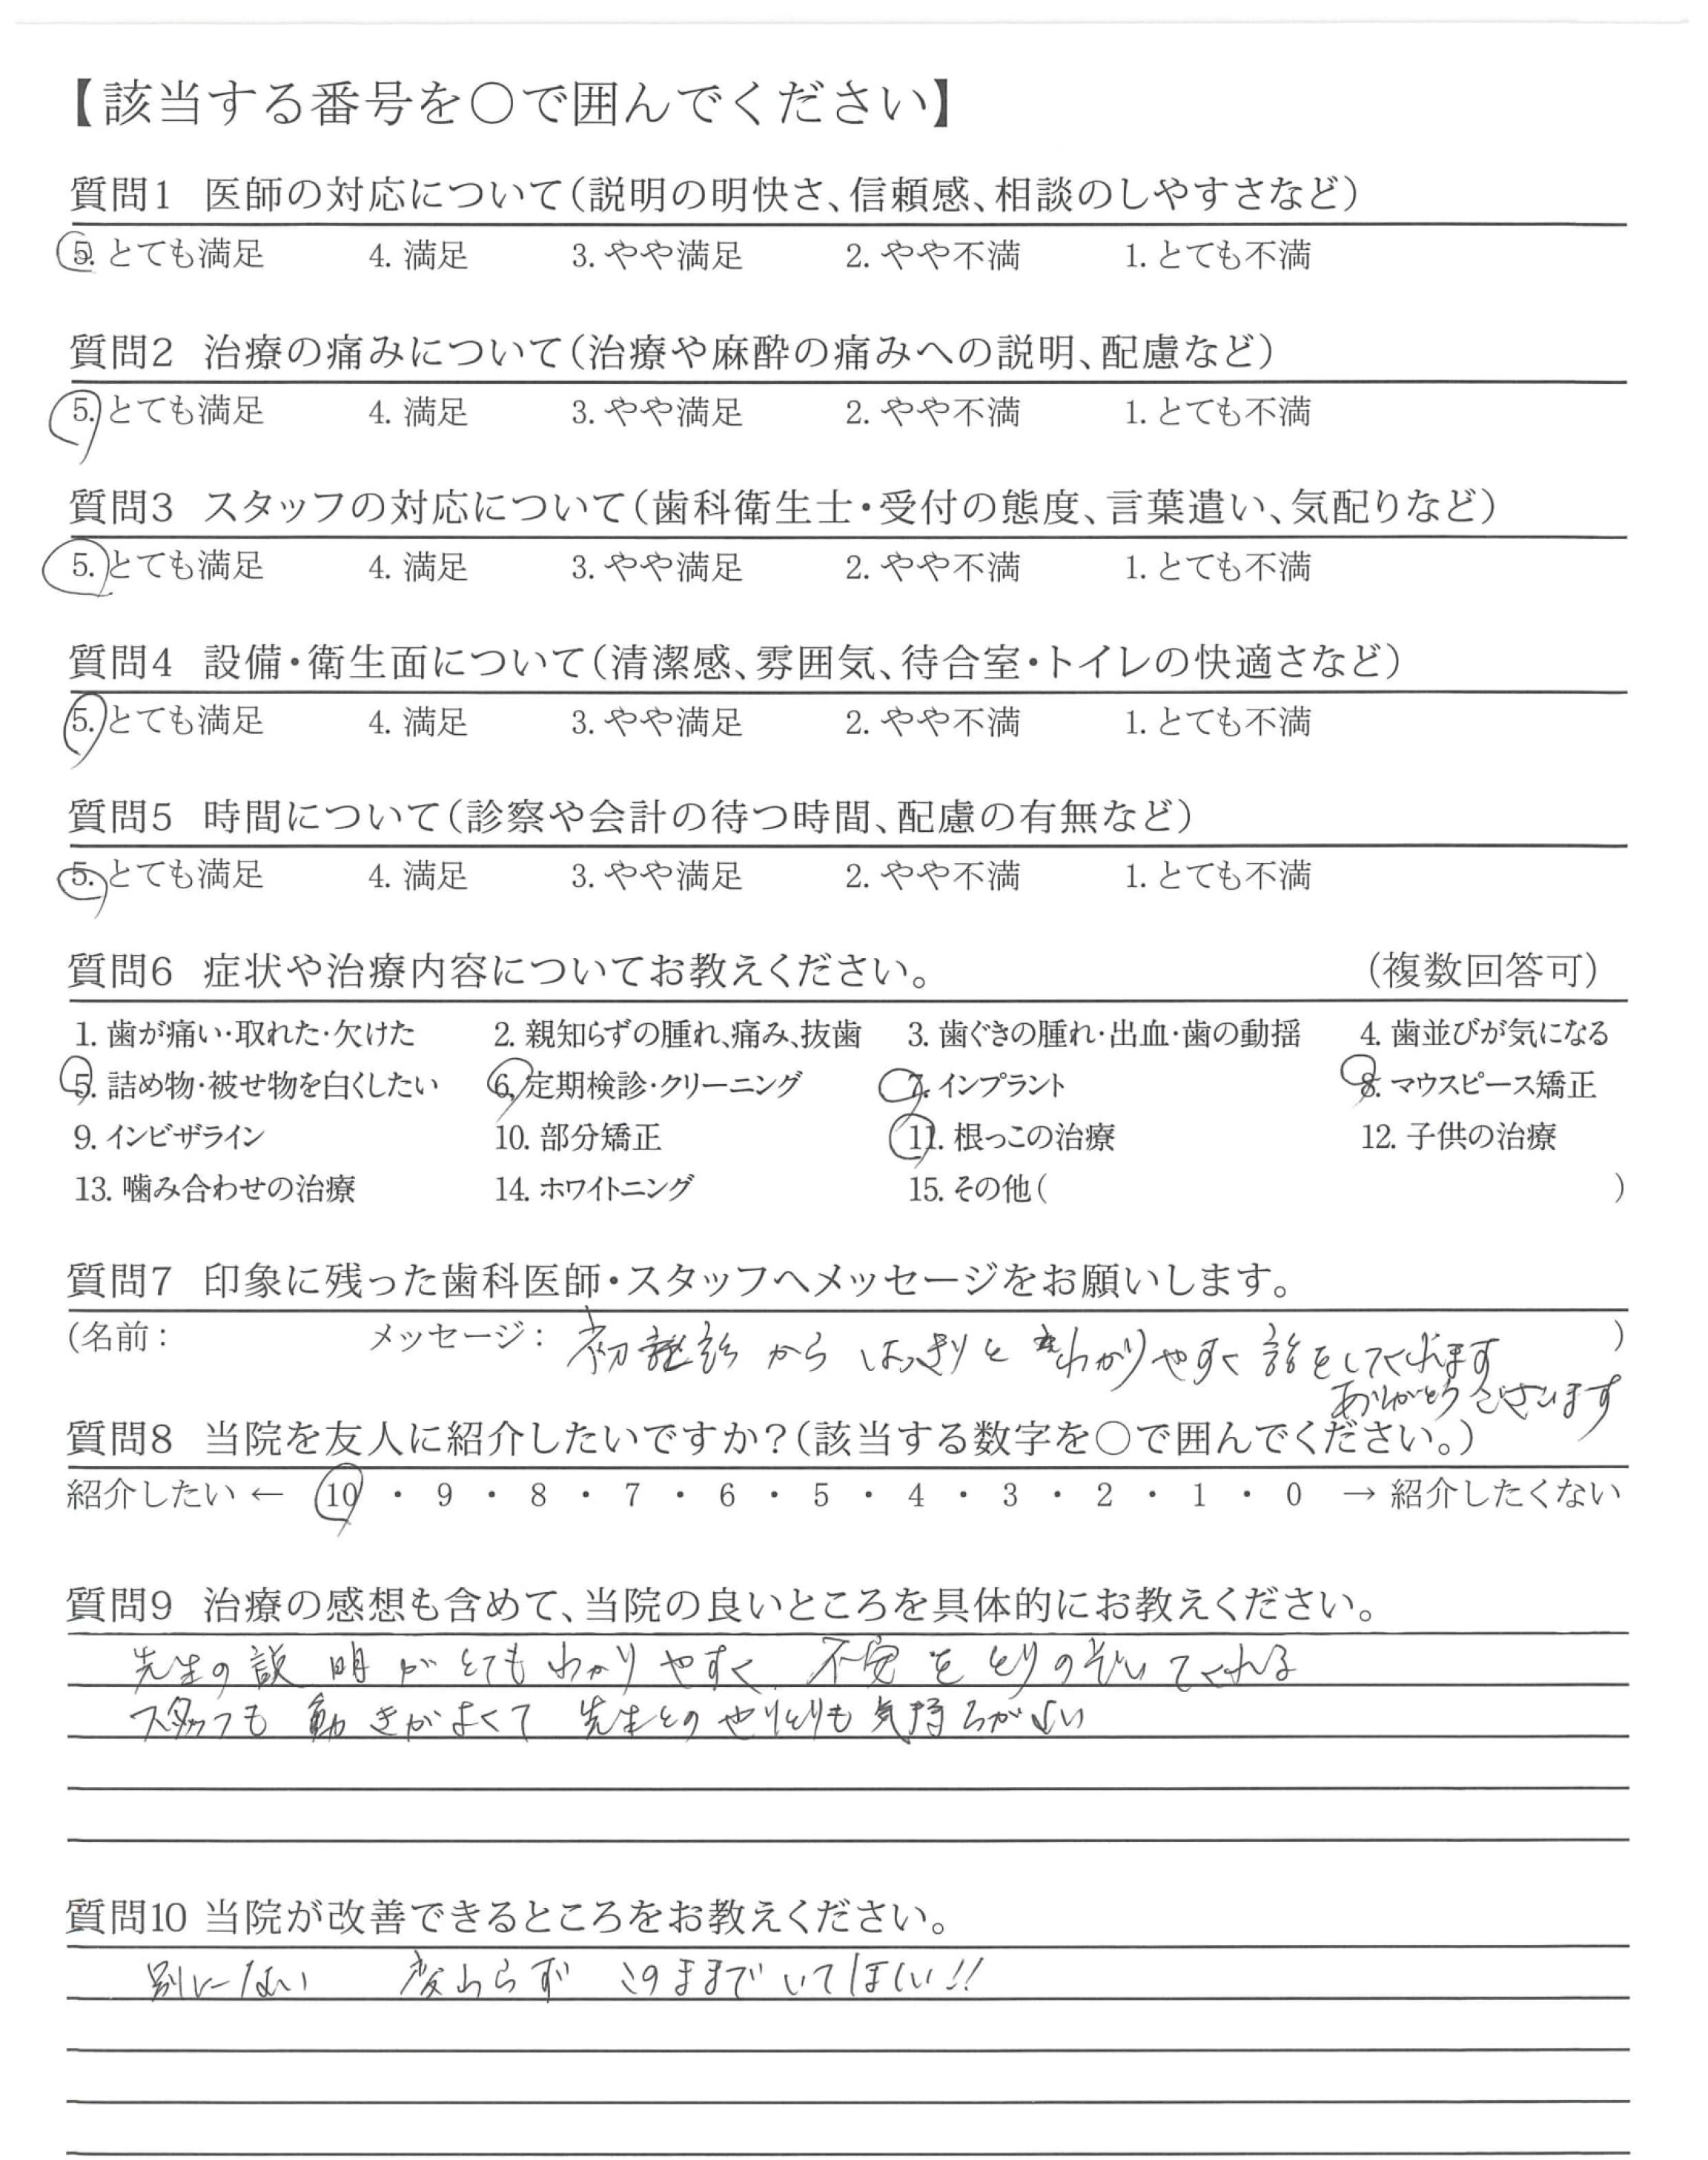 【該当する番号を○で囲んでください】
質問1 医師の対応について(説明の明快さ、信頼感、相談のしやすさなど)
5. とても満足 4. 満足 3. やや満足 2. やや不満 1. とても不満
質問2 治療の痛みについて(治療や麻酔の痛みへの説明、配慮など)
5. とても満足 4. 満足 3. やや満足 2. やや不満 1. とても不満
質問3 スタッフの対応について(歯科衛生士・受付の態度、言葉遣い、気配りなど)
5. とても満足 4. 満足 3. やや満足 2. やや不満 1. とても不満
質問4 設備・衛生面について(清潔感、雰囲気、待合室・トイレの快適さなど)
5. とても満足 4. 満足 3. やや満足 2. やや不満 1. とても不満
質問5 時間について(診察や会計の待つ時間、配慮の有無など)
5. とても満足 4. 満足 3. やや満足 2. やや不満 1. とても不満
質問6 症状や治療内容についてお教えください。 (複数回答可)
1. 歯が痛い・取れた・欠けた 2. 親知らずの腫れ、痛み、抜歯 3. 歯ぐきの腫れ・出血・歯の動揺 4. 歯並びが気になる
5. 詰め物・被せ物を白くしたい 6. 定期検診・クリーニング 7. インプラント 8. マウスピース矯正
9. インビザライン 10. 部分矯正 11. 根っこの治療 12. 子供の治療
13. 噛み合わせの治療 14. ホワイトニング 15. その他( )
質問7 印象に残った歯科医師・スタッフへメッセージをお願いします。
(名前: メッセージ: 初 診 から はっきりと わかりやすく 話をしてくれます )
ありがとうございます
質問8 当院を友人に紹介したいですか?(該当する数字を○で囲んでください。)
紹介したい ← 10 ・ 9 ・ 8 ・ 7 ・ 6 ・ 5 ・ 4 ・ 3 ・ 2 ・ 1 ・ 0 → 紹介したくない
質問9 治療の感想も含めて、当院の良いところを具体的にお教えください。
先生の説明がとてもわかりやすく、不安をとりのぞいてくれる
スタッフも動きがよくて 先生とのやりとりも気持ちがよい
質問10 当院が改善できるところをお教えください。
別にない 変わらず このままでいてほしい!!